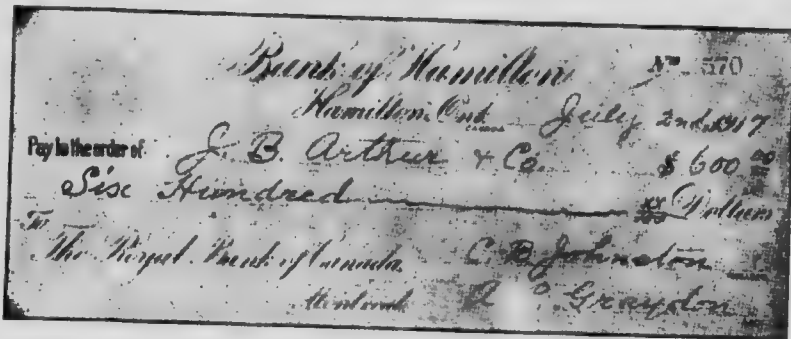 Bank of Hamilton No 570
Hamilton, Ont. July 2nd, 1917
Pay to the order of J. B. Arthur & Co. $ 600 00
Six Hundred xx Dollars
To
The Royal Bank of Canada, C. B. Johnston
Montreal. Graydon